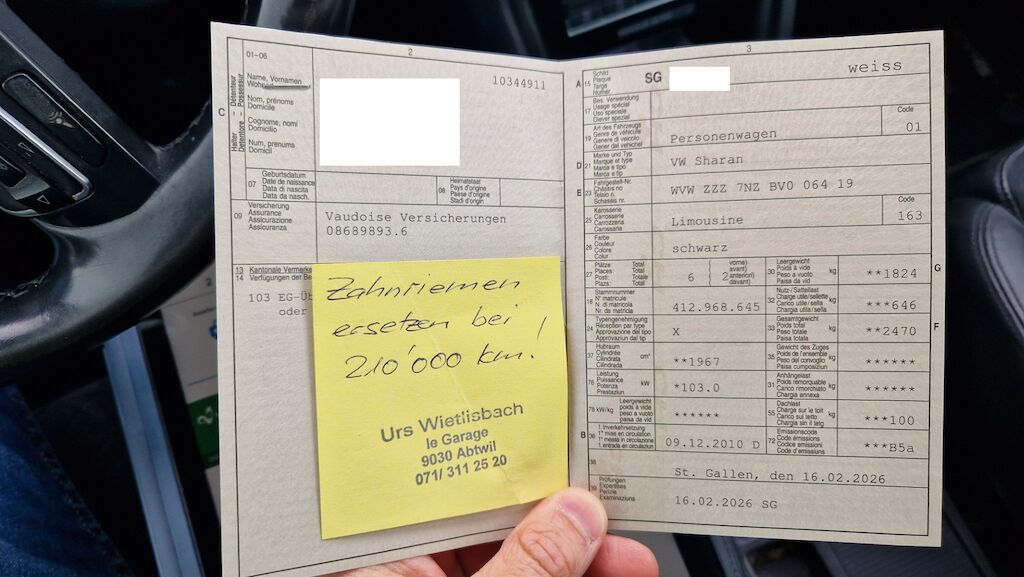 2
01-06
Name, Vornamen
Nom, prénoms
Domicile
Cognome, nomi
Domicilio
Num, prenums
Domicil
C
10344911
07
Geburtsdatum
Date de naissance
Data di nascita
Data da nasch.
08
Heimatstaat
Pays d'origine
Paese d'origine
Stadi d'origin
09
Versicherung
Assurance
Assicurazione
Assicuranza
Vaudoise Versicherungen
08689893.6
13 Kantonale Vermerke
14 Verfügungen der Be
103 EG-Üb
oder
Zahnriemen
ersetzen bei
210'000 km!
Urs Wietlisbach
le Garage
9030 Abtwil
071/ 311 25 20
3
A 15
Schild
Plaque
Targa
Numer
SG
weiss
17
Bes. Verwendung
Usage spécial
Uso speciale
Diever spezial
19
Art des Fahrzeugs
Genre de véhicule
Genere di veicolo
Gener dal vehichel
Personenwagen
Code
01
D 21
Marke und Typ
Marque et type
Marca e tipo
Marca e tip
VW Sharan
E 23
Fahrgestell-Nr.
Châssis no
Telaio n.
Schassis nr.
WVW ZZZ 7NZ BV0 064 19
25
Karosserie
Carrosserie
Carrozzeria
Carossaria
Limousine
Code
163
26
Farbe
Couleur
Colore
Colur
schwarz
27
Plätze: Total
Places: Total
Posti: Totale
Plazs: Total
6
2
vorne)
avant)
anteriori)
davant)
30
Leergewicht
Poids à vide
Peso a vuoto
Paisa da vid
kg
**1824
G
18
Stammnummer
N° matricule
N. di matricola
Nr. da matricla
412.968.645
32
Nutz-/Sattellast
Charge utile/sellette
Carico utile/sella
Chargia utila/sella
kg
***646
24
Typengenehmigung
Réception par type
Approvazione del tipo
Approvaziun dal tip
X
33
Gesamtgewicht
Poids total
Peso totale
Paisa totala
kg
**2470
F
37
Hubraum
Cylindrée
Cilindrata
Cilindrada
cm³
**1967
35
Gewicht des Zuges
Poids de l'ensemble
Peso del convoglio
Paisa cumposiziun
kg
******
76
Leistung
Puissance
Potenza
Prestaziun
kW
*103.0
31
Anhängelast
Poids remorquable
Carico rimorchiato
Chargia annexa
kg
******
78 kW/kg
Leergewicht
poids à vide
peso a vuoto
paisa da vid
******
55
Dachlast
Charge sur le toit
Carico sul tetto
Chargia sin il tetg
kg
***100
B 36
1. Inverkehrsetzung
1re mise en circulation
1a messa in circolazione
1. entrada en circulaziun
09.12.2010 D
72
Emissionscode
Code émissions
Codice emissioni
Code d'emissiuns
***B5a
38
St. Gallen, den 16.02.2026
39
Prüfungen
Expertises
Perizie
Examinaziuns
16.02.2026 SG